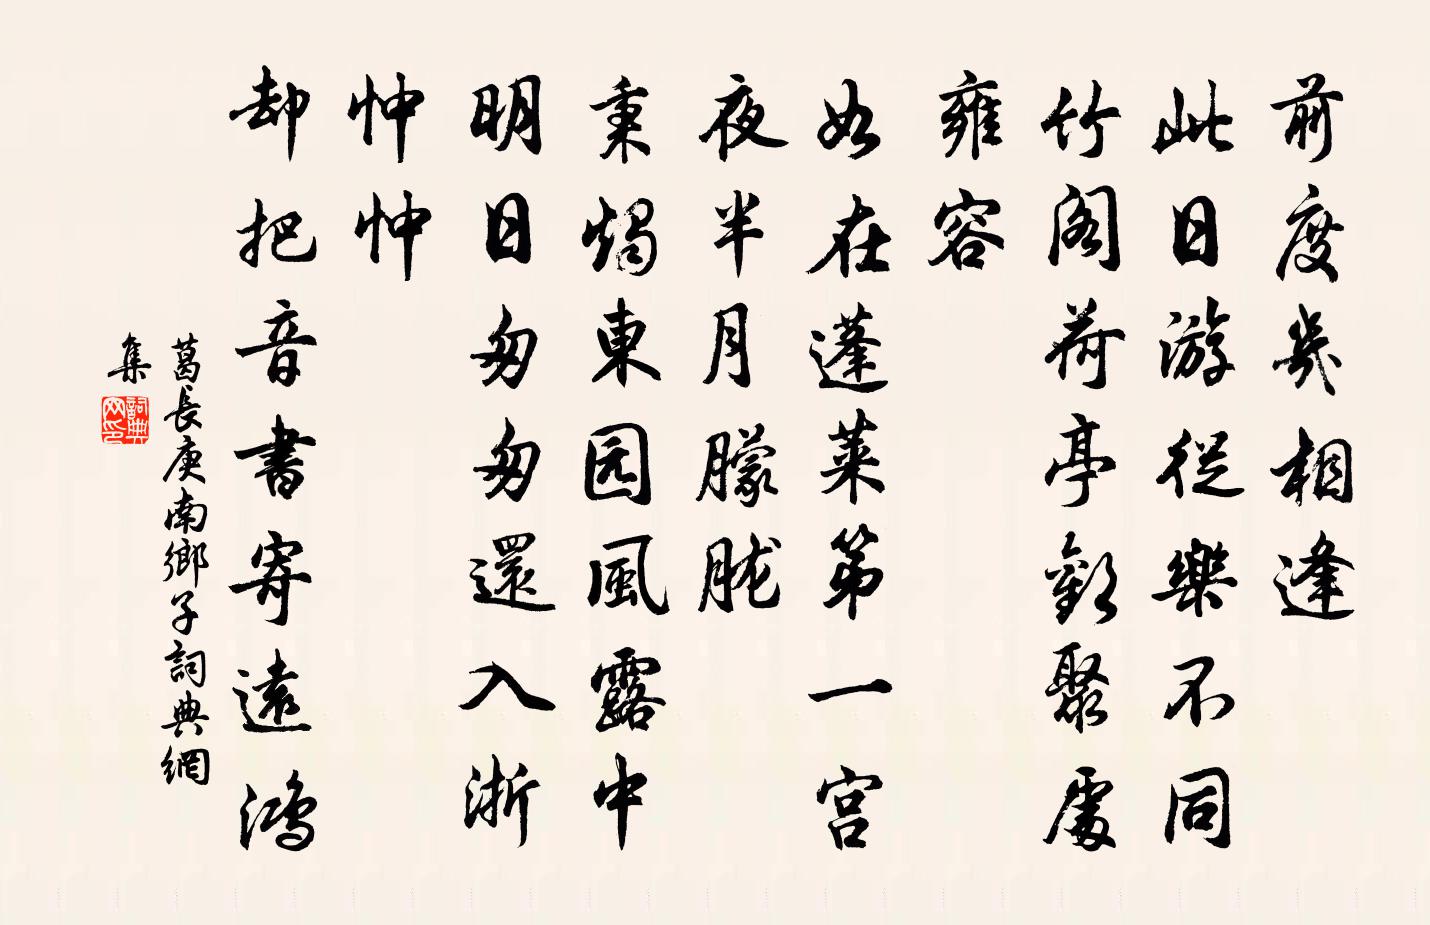 前度幾相逢
此日游從樂不同
竹閣荷亭歡聚處
雍容
如在蓬萊第一宮
夜半月朦朧
秉燭東园風露中
明日匆匆還入浙
忡忡
却把音書寄遠鴻
葛長庚南鄉子詞典網
集
詞典网印